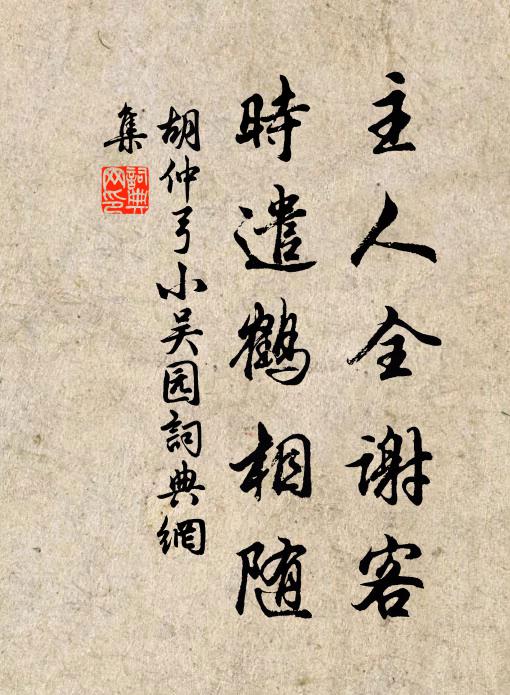 主人全谢客
時遣鶴相随
胡仲弓小吴园詞典網
集
詞典
网印